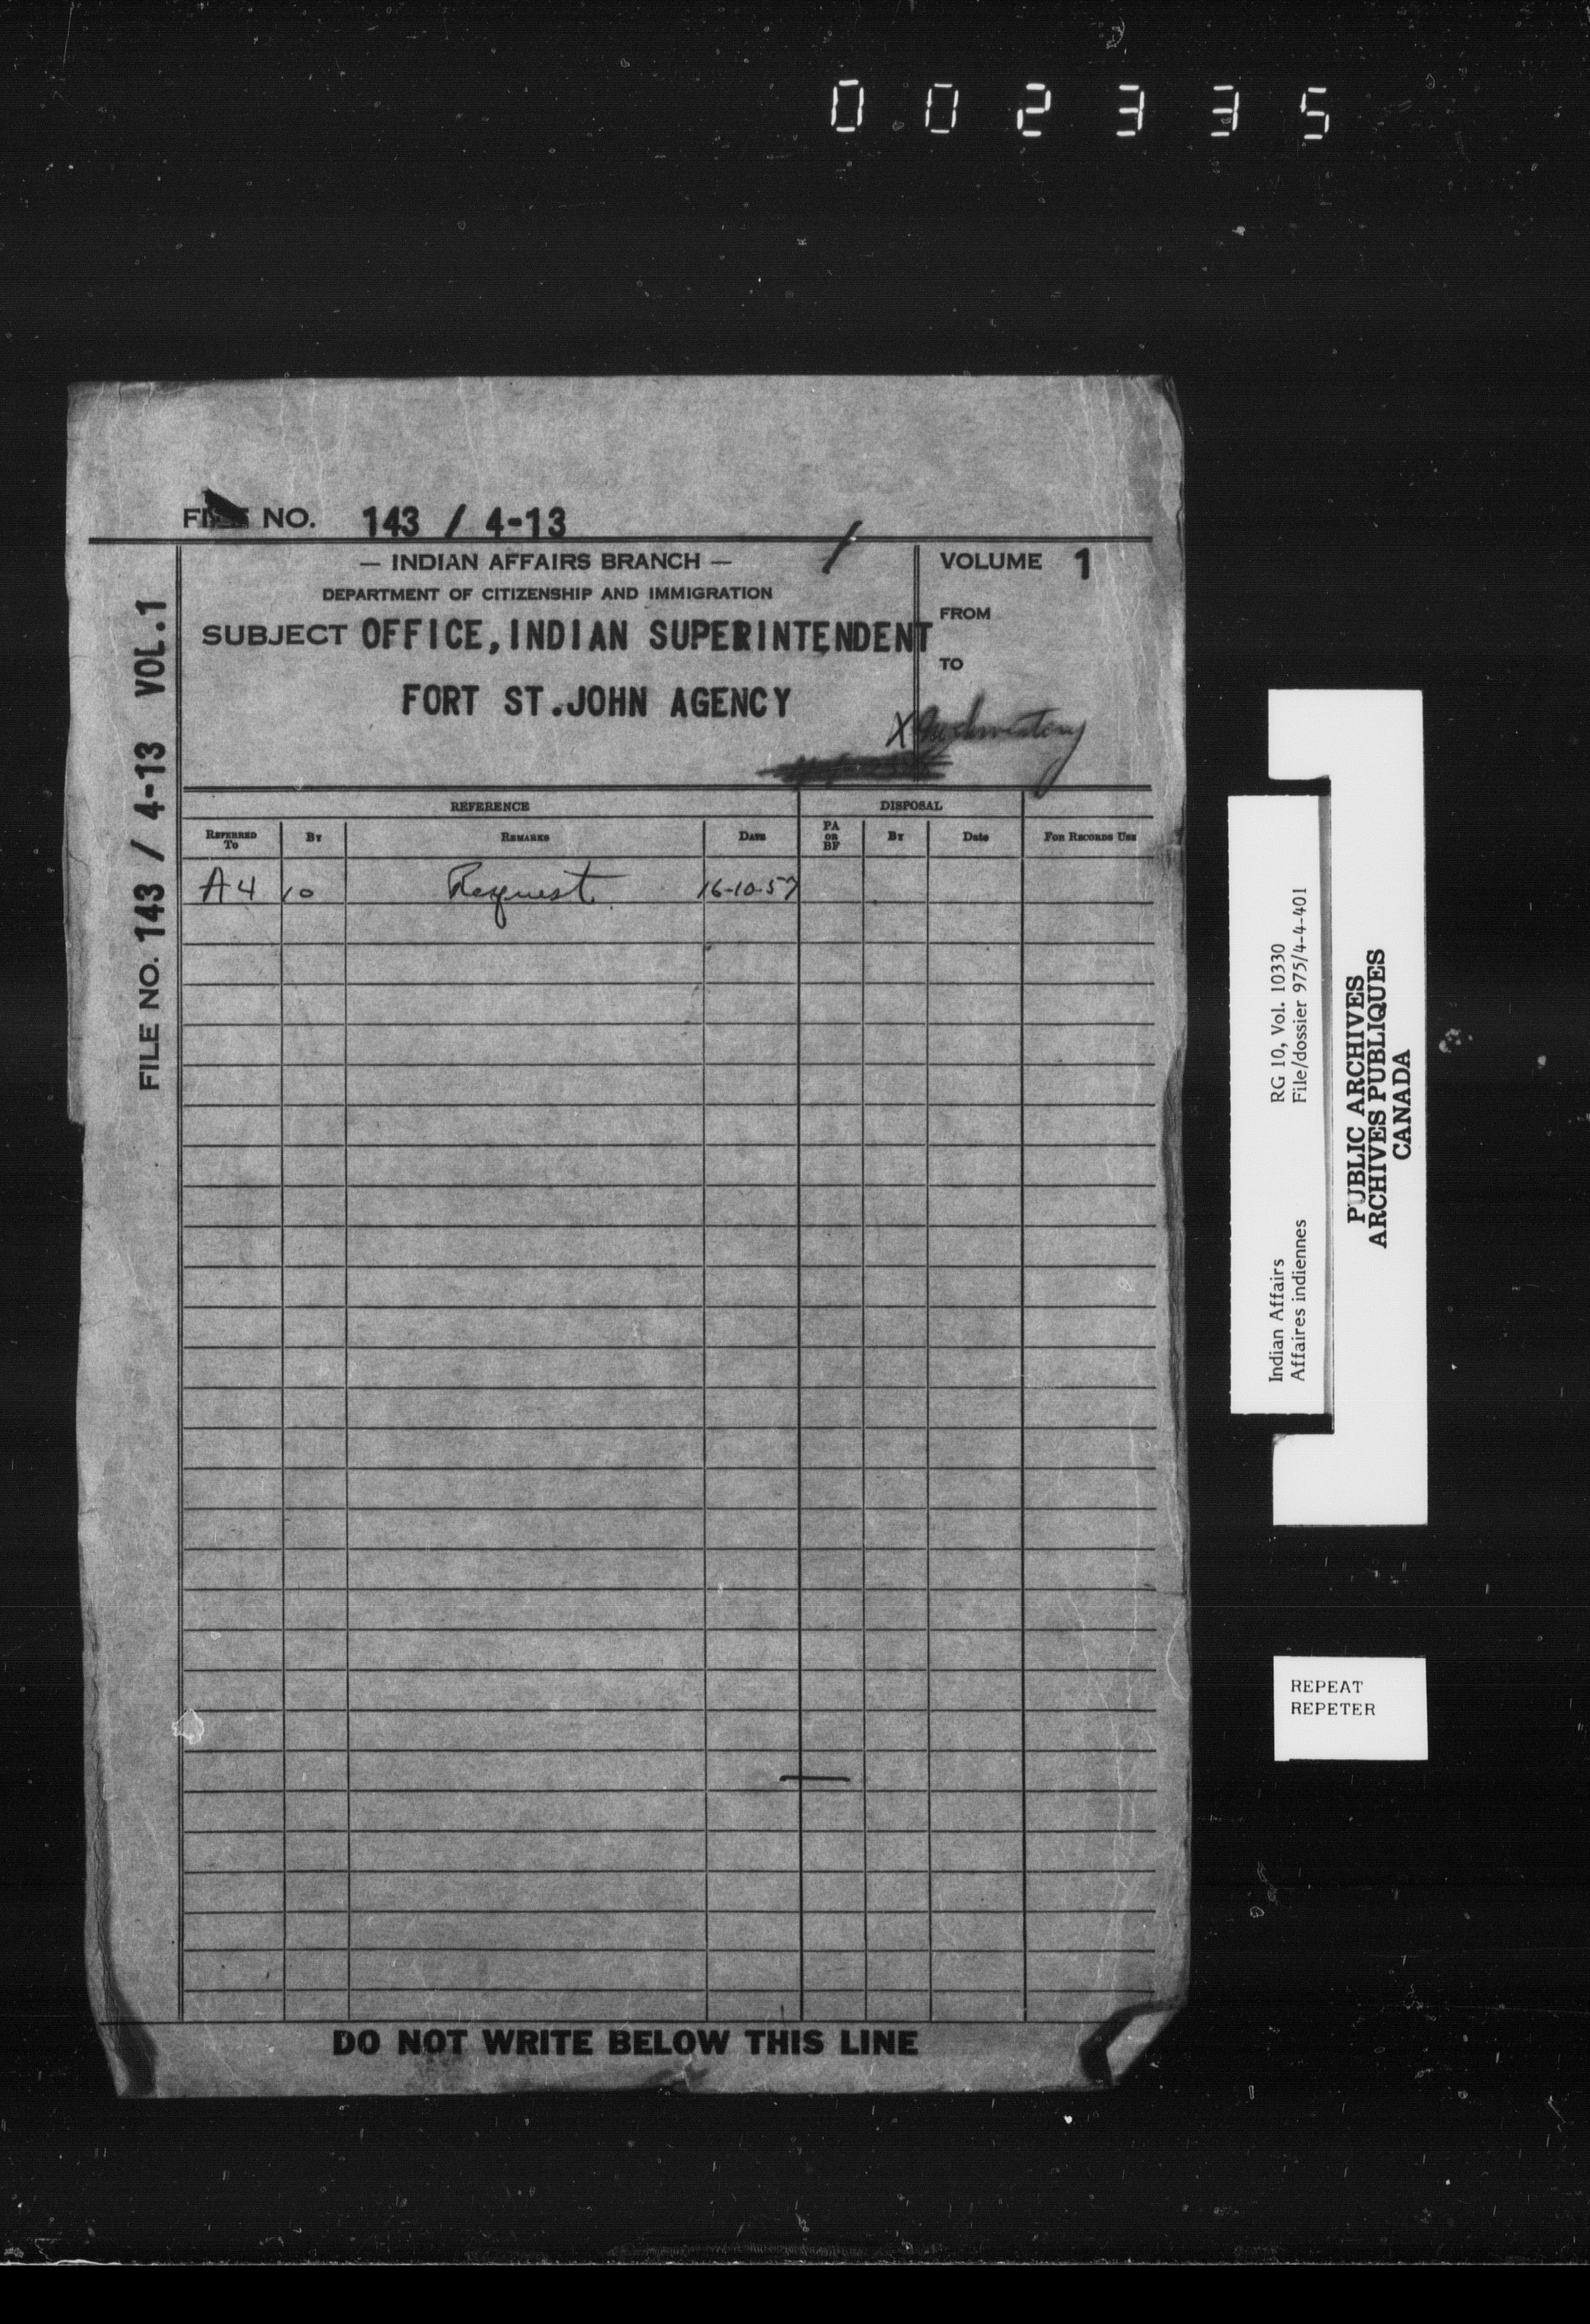 002335
FILE NO. 143 / 4-13
— INDIAN AFFAIRS BRANCH —
DEPARTMENT OF CITIZENSHIP AND IMMIGRATION
SUBJECT OFFICE, INDIAN SUPERINTENDENT
FORT ST. JOHN AGENCY
VOLUME 1
FROM
TO
REFERENCE
DISPOSAL
REFERRED TO
BY
REMARKS
DATE
PA OR BF
BY
Date
FOR RECORDS USE
A4 10 Request 16-10-57
DO NOT WRITE BELOW THIS LINE
FILE NO. 143 / 4-13 VOL.1
Indian Affairs RG 10, Vol. 10330
Affaires indiennes File/dossier 975/4-4-401
PUBLIC ARCHIVES
ARCHIVES PUBLIQUES
CANADA
REPEAT
REPETER